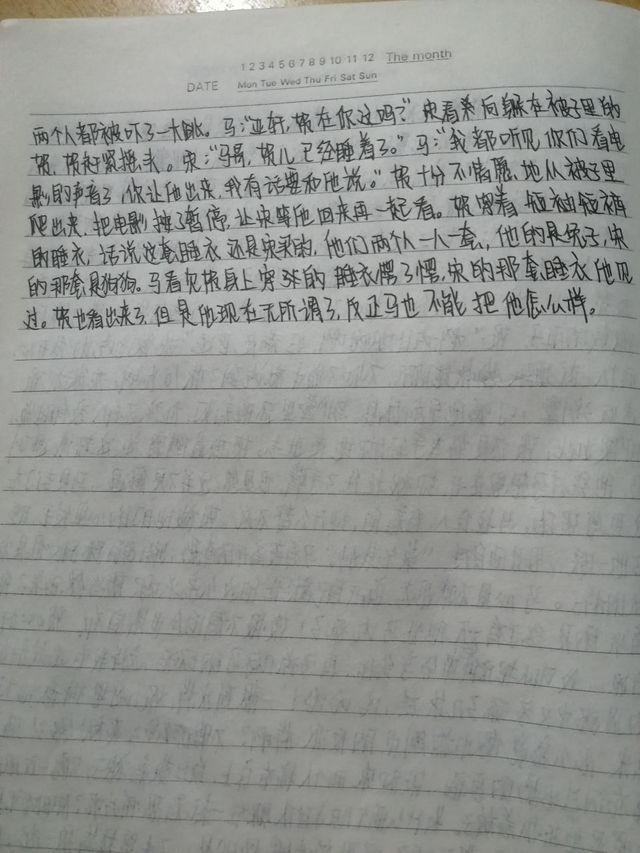 1 2 3 4 5 6 7 8 9 10 11 12 The month
DATE Mon Tue Wed Thu Fri Sat Sun
两个人都被吓了一大跳。马:"亚轩, 在你这吗?"宋看着向躲在被子里的
,赶紧摇头。宋:"马哥,儿已经睡着了。"马:"我都听见你们看电
影的声音了,你让他出来,我有话要和他说。"十分不情愿地从被子里
爬出来,把电影摁了暂停,让宋等他回来再一起看。穿着短袖短裤
的睡衣,话说这套睡衣还是宋买的,他们两个人一人一套,他的是兔子,宋
的那套是狗狗。马看见身上穿的睡衣愣了愣,宋的那套睡衣他见
过。也看出来了,但是他现在无所谓了,反正马也不能把他怎么样。